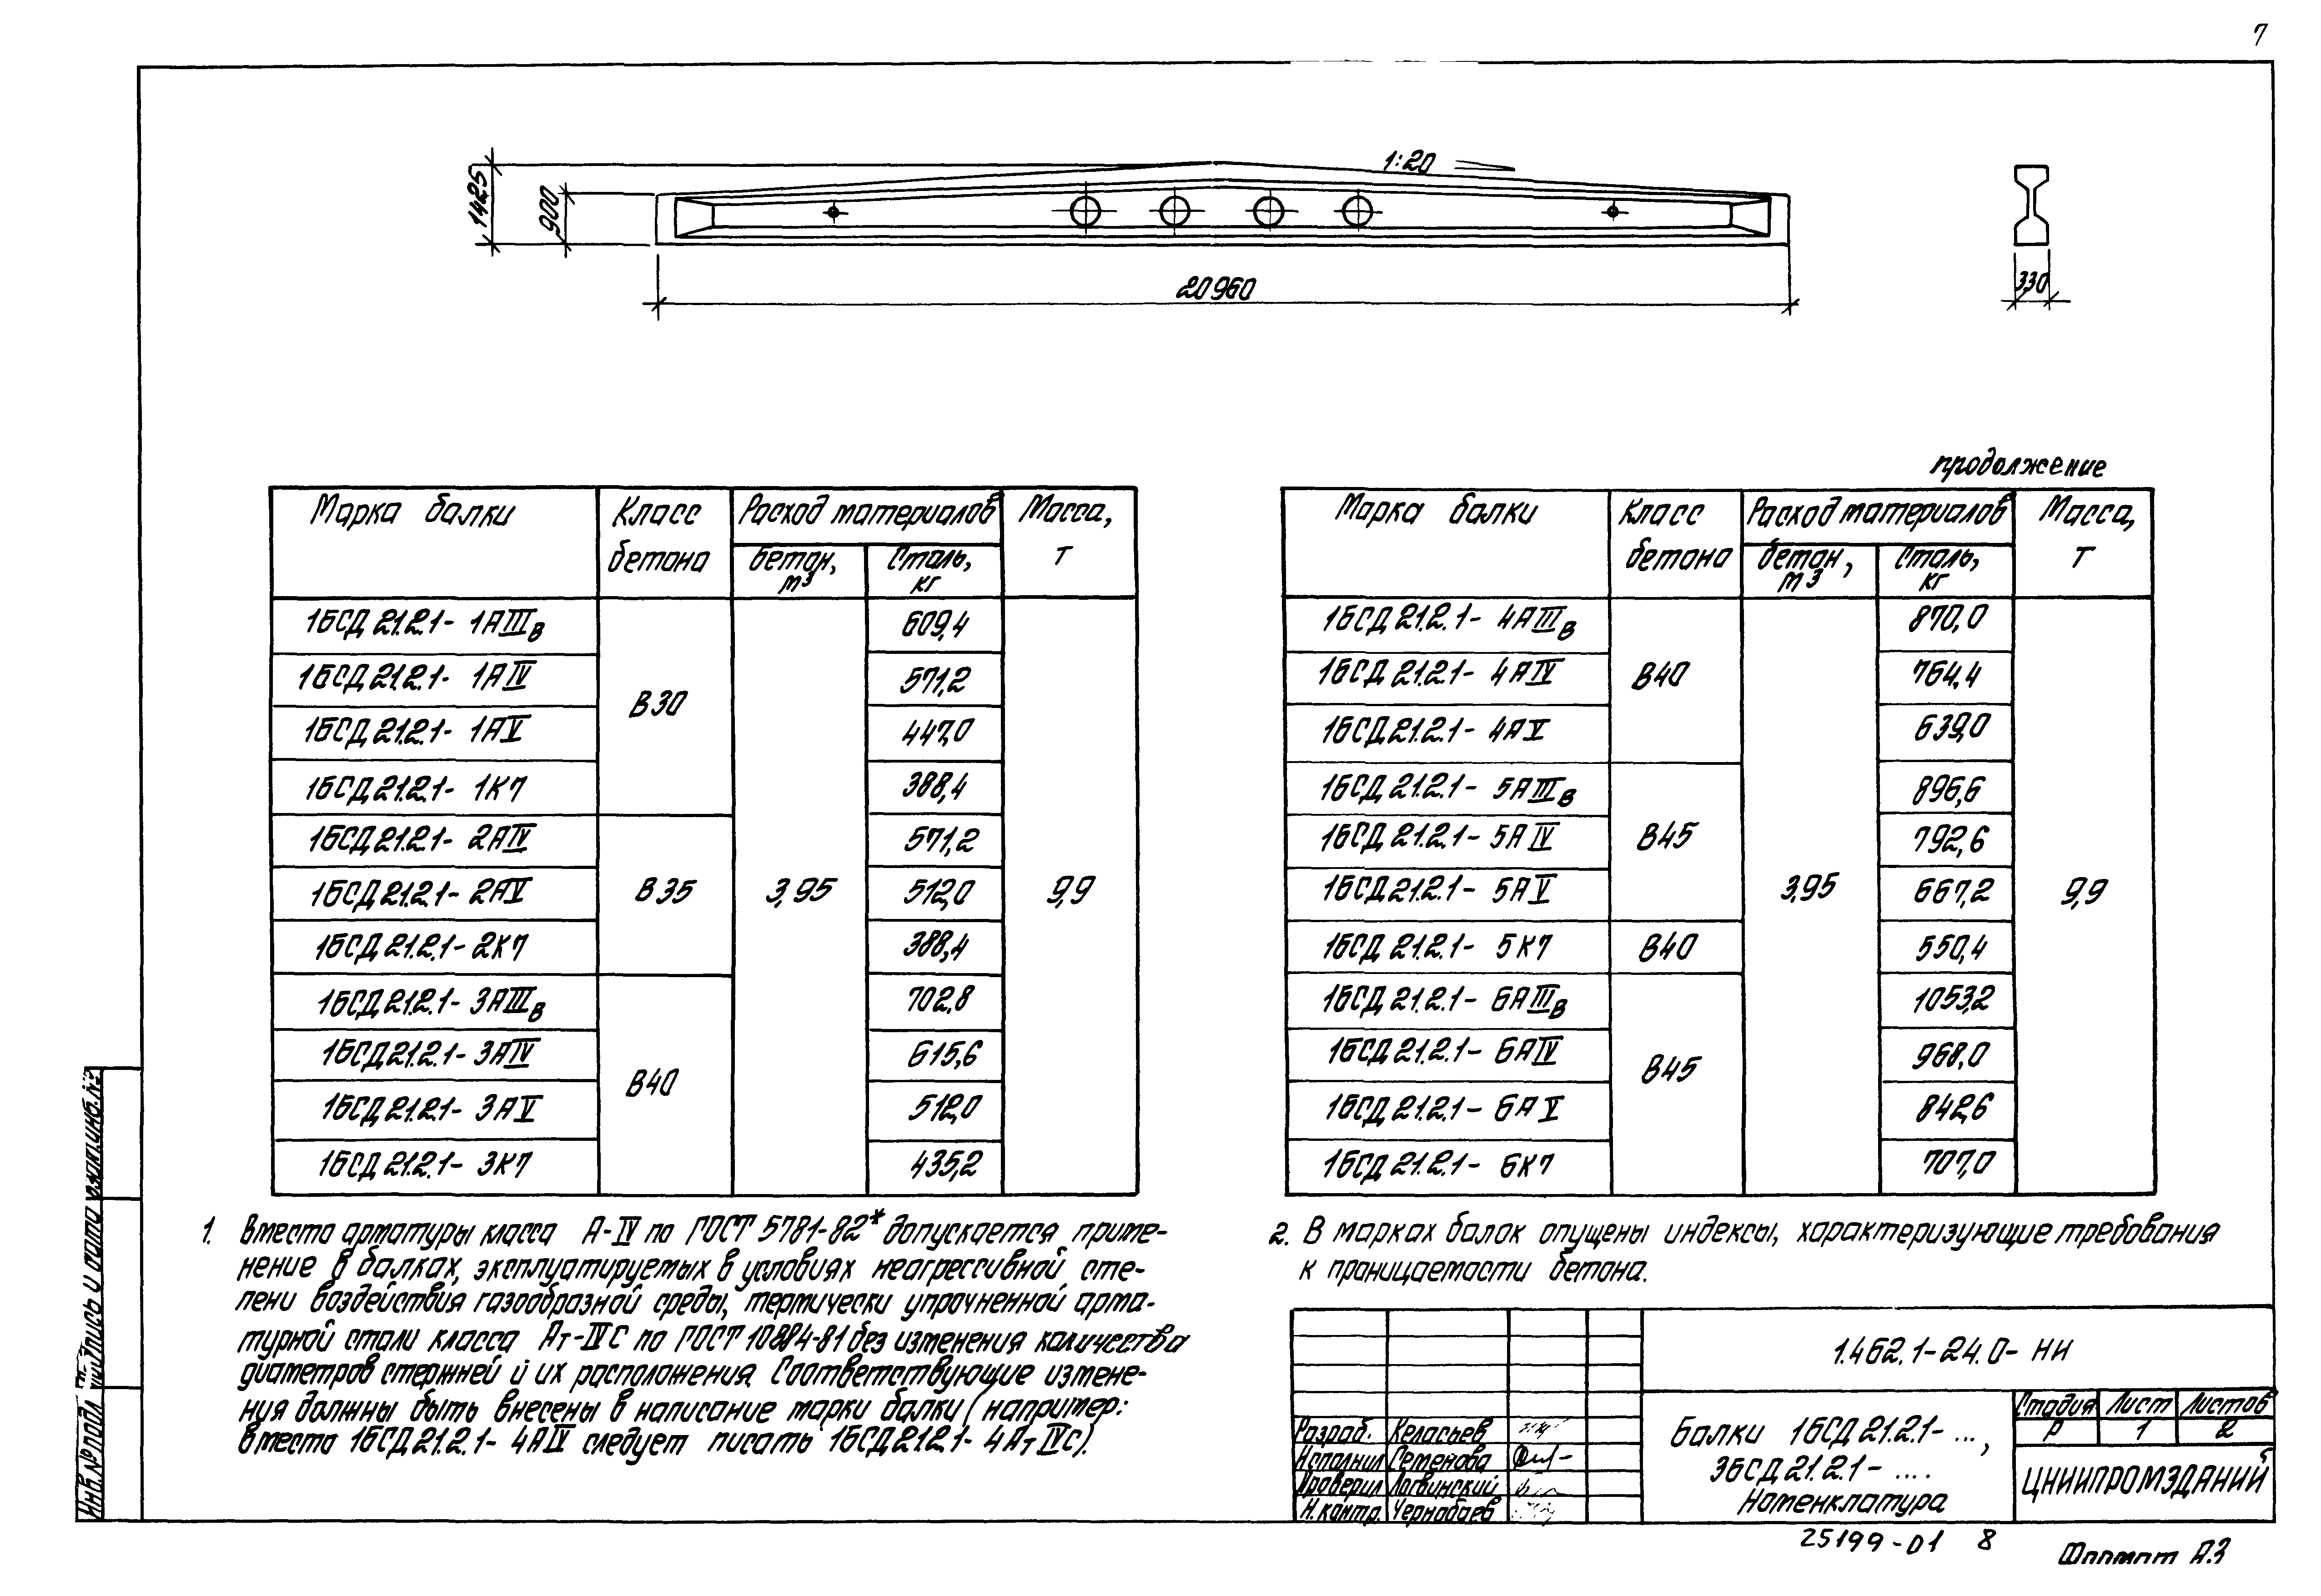 7
1425
900
1:20
20960
330
продолжение
Марка балки
Класс бетона
Расход материалов
Масса, т
бетон, м3
Сталь, кг
1БСД 21.2.1- 1АIIIв 609,4
1БСД 21.2.1- 1АIV 571,2
В30
1БСД 21.2.1- 1АV 447,0
1БСД 21.2.1- 1К7 388,4
1БСД 21.2.1- 2АIV 571,2
1БСД 21.2.1- 2АV В35 3,95 512,0 9,9
1БСД 21.2.1- 2К7 388,4
1БСД 21.2.1- 3АIIIв 702,8
1БСД 21.2.1- 3АIV 615,6
В40
1БСД 21.2.1- 3АV 512,0
1БСД 21.2.1- 3К7 435,2
Марка балки
Класс бетона
Расход материалов
Масса, т
бетон, м3
Сталь, кг
1БСД 21.2.1- 4АIIIв 870,0
1БСД 21.2.1- 4АIV В40 764,4
1БСД 21.2.1- 4АV 639,0
1БСД 21.2.1- 5АIIIв 896,6
1БСД 21.2.1- 5АIV В45 792,6
1БСД 21.2.1- 5АV 3,95 667,2 9,9
1БСД 21.2.1- 5К7 В40 550,4
1БСД 21.2.1- 6АIIIв 1053,2
1БСД 21.2.1- 6АIV 968,0
В45
1БСД 21.2.1- 6АV 842,6
1БСД 21.2.1- 6К7 707,0
1. Вместо арматуры класса А-IV по ГОСТ 5781-82* допускается приме-
нение в балках, эксплуатируемых в условиях неагрессивной сте-
пени воздействия газообразной среды, термически упрочненной арма-
турной стали класса Ат-IVС по ГОСТ 10884-81 без изменения количества
диаметров стержней и их расположения. Соответствующие измене-
ния должны быть внесены в написание марки балки (например:
вместо 1БСД 21.2.1- 4АIV следует писать 1БСД 21.2.1- 4АтIVс).
2. В марках балок опущены индексы, характеризующие требования
к проницаемости бетона.
1.462.1-24.0- НИ
Разраб. Келасьев
Исполнил Семенова
Проверил Логвинский
Н. контр. Чернобаев
Балки 1БСД 21.2.1- ...,
3БСД 21.2.1- ....
Номенклатура
Стадия Лист Листов
Р 1 2
ЦНИИПРОМЗДАНИЙ
25199-01 8
Формат А3
Инв.№ подл.
Подпись и дата
Взам.инв.№